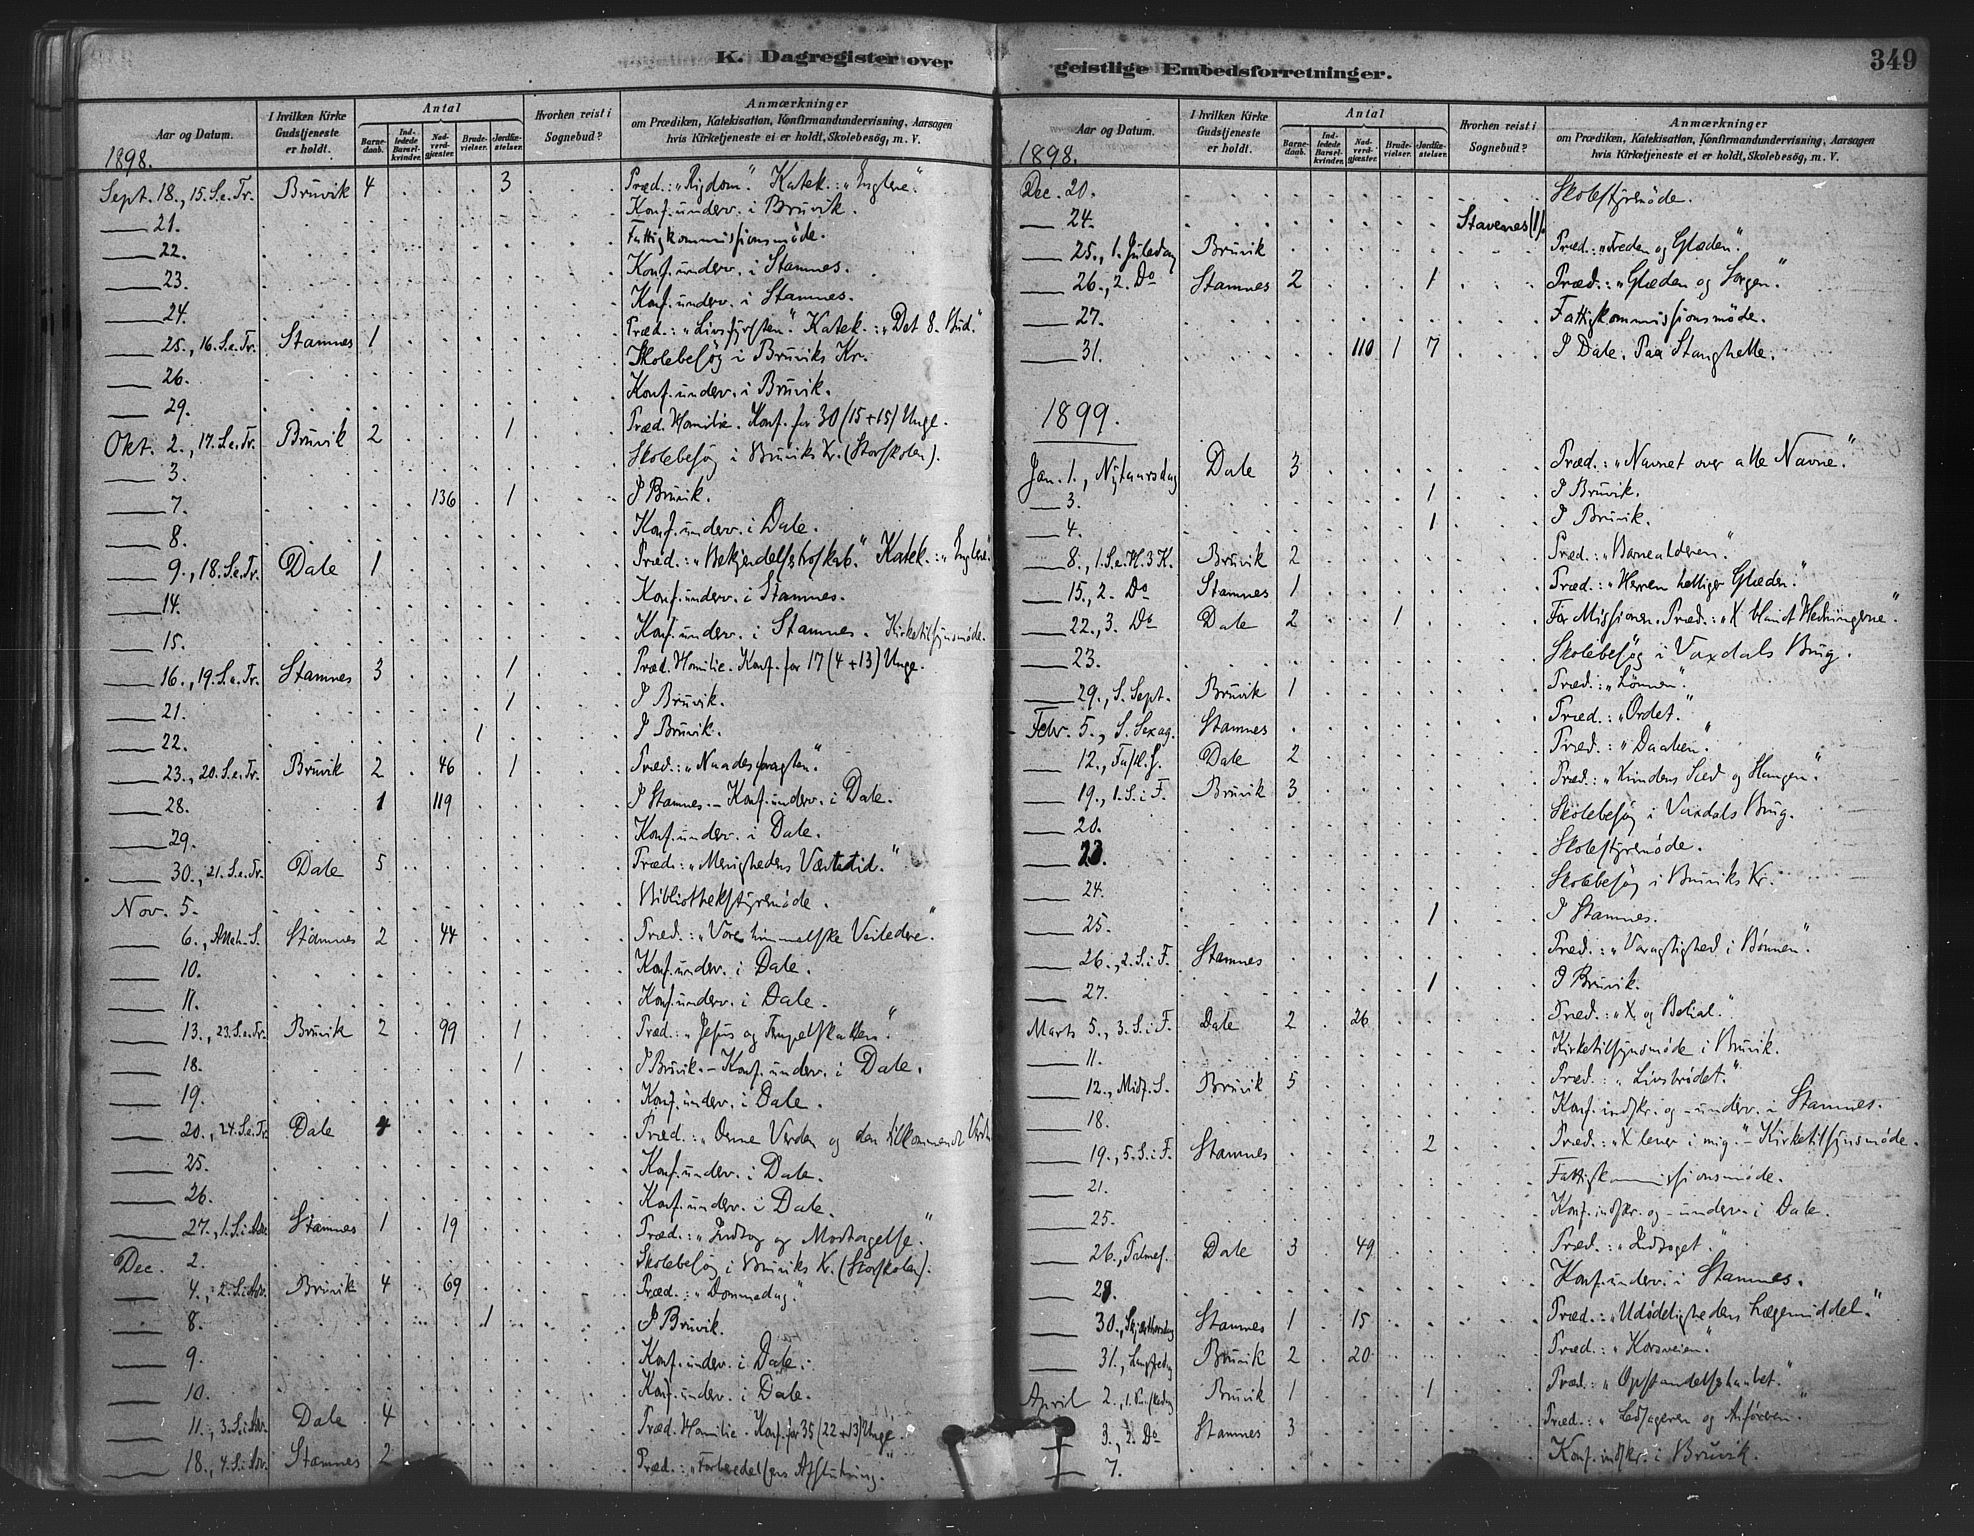 K. Dagregister over geistlige Embedsforretninger.
349
Aar og Datum.
I hvilken Kirke Gudstjeneste er holdt.
Antal
Barnedaab.
Indledede Barselkvinder.
Nadverdgjæster.
Brudevielser.
Jordfæstelser.
Hvorhen reist i Sognebud?
Anmærkninger
om Prædiken, Katekisation, Konfirmandundervisning, Aarsagen
hvis Kirketjeneste ei er holdt, Skolebesög, m. V.
1898.
Sept. 18., 15. S.e.Tr. Bruvik 4 3 Præd.: "Rigdom." Katek.: "Englene."
21. Konf. underv. i Bruvik.
22. Fattigkommissionsmøde.
23. Konf. underv. i Stamnes.
24. Konf. underv. i Stamnes.
25., 16. S.e.Tr. Stamnes 1 Præd.: "Livsfyrsten." Katek.: "Det 8. Bud."
26. Skolebesøg i Bruviks Kr.
29. Konf. underv. i Bruvik.
Okt. 2., 17. S.e.Tr. Bruvik 2 1 Præd. Homilie. Konf. for 30 (15+15) Unge.
3. Skolebesøg i Bruviks Kr. (Storskolen).
7. 136 1 I Bruvik.
8. Konf. underv. i Dale.
9., 18. S.e.Tr. Dale 1 Præd.: "Bekjendelsesskab." Katek.: "Englene"
14. Konf. underv. i Stamnes.
15. Konf. underv. i Stamnes. Kirketilsynsmøde.
16., 19. S.e.Tr. Stamnes 3 1 Præd. Homilie. Konf. for 17 (4+13) Unge.
21. 1 I Bruvik.
22. 1 I Bruvik.
23., 20. S.e.Tr. Bruvik 2 46 1 Præd.: "Naadespagten."
28. 1 119 I Stamnes. - Konf. underv. i Dale.
29. Konf. underv. i Dale.
30., 21. S.e.Tr. Dale 5 Præd.: "Menighedens Væxtetid."
Nov. 5. Bibliothekstyremøde.
6., Alleh. S. Stamnes 2 44 Præd.: "Vore himmelske Veiledere."
10. Konf. underv. i Dale.
11. Konf. underv. i Dale.
13., 23. S.e.Tr. Bruvik 2 99 1 Præd.: "Jesus og Tempelskatten."
18. 1 I Bruvik. - Konf. underv. i Dale.
19. Konf. underv. i Dale.
20., 24. S.e.Tr. Dale 4 Præd.: "Denne Verden og den tilkommende
25. Konf. underv. i Dale.
26. Konf. underv. i Dale.
27., 1. S. i Adv. Stamnes 1 19 Præd.: "Indtog og Modtagelse."
Dec. 2. Skolebesøg i Bruviks Kr. (Storskolen).
4., 2. S. i Adv. Bruvik 4 69 Præd.: "Dommedag."
8. 1 I Bruvik.
9. Konf. underv. i Dale.
10. Konf. underv. i Dale.
11., 3. S. i Adv. Dale 4 Præd. Homilie. Konf. for 35 (22+13) Unge.
18., 4. S. i Adv. Stamnes 2 Præd.: "Forberedelsens Afslutning."
Aar og Datum.
I hvilken Kirke Gudstjeneste er holdt.
Antal
Barnedaab.
Indledede Barselkvinder.
Nadverdgjæster.
Brudevielser.
Jordfæstelser.
Hvorhen reist i Sognebud?
Anmærkninger
om Prædiken, Katekisation, Konfirmandundervisning, Aarsagen
hvis Kirketjeneste ei er holdt, Skolebesög, m. V.
1898.
Dec. 20. Skolestyremøde.
24. Stavenes (1).
25., 1. Juledag Bruvik Præd.: "Freden og Glæden."
26., 2. Do Stamnes 2 1 Præd.: "Glæden og Sorgen."
27. Fattigkommissionsmøde.
31. 110 1 7 I Dale. Paa Stanghelle.
1899.
Jan. 1., Nytaarsdag Dale 3 Præd.: "Navnet over alle Navne."
3. 1 I Bruvik.
4. 1 I Bruvik.
8., 1. S.e.H.3K. Bruvik 2 Præd.: "Barnealderen."
15., 2. Do Stamnes 1 Præd.: "Herren helliger Glæden."
22., 3. Do Dale 2 1 For Missionen. Præd.: "X blandt Hedningerne."
23. Skolebesøg i Vaxdals Brug.
29., S. Sept. Bruvik 1 Præd.: "Lønnen."
Febr. 5., S. Sexag. Stamnes Præd.: "Ordet."
12., Fastl. S. Dale 2 Præd.: "Daaben."
19., 1. S. i F. Bruvik 3 Præd.: "Kvindens Sæd og Slangen."
20. Skolebesøg i Vaxdals Brug.
23. Skolestyremøde.
24. Skolebesøg i Bruviks Kr.
25. 1 I Stamnes.
26., 2. S. i F. Stamnes Præd.: "Varagtighed i Bønnen."
27. 1 I Bruvik.
Marts 5., 3. S. i F. Dale 2 26 Præd.: "X og Belial."
11. Kirketilsynsmøde i Bruvik.
12., Midf. S. Bruvik 5 Præd.: "Livsbrødet."
18. Konf. indskr. og -underv. i Stamnes.
19., 5. S. i F. Stamnes 2 Præd.: "X lever i mig." - Kirketilsynsmøde.
21. Fattigkommissionsmøde.
25. Konf. indskr. og -underv. i Dale.
26., Palmes. Dale 3 49 Præd.: "Indtoget."
29. Konf. underv. i Stamnes.
30., Skjærthorsdag Stamnes 1 15 Præd.: "Udødelighedens Lægemiddel."
31., Langfredag Bruvik 2 20 Præd.: "Korsveien."
April 2., 1. Paaskedag Bruvik 1 1 Præd.: "Opstandelseshaabet."
3., 2. Do Stamnes 3 Præd.: "Ledsageren og Anføreren."
7. Konf. indskr. i Bruvik.